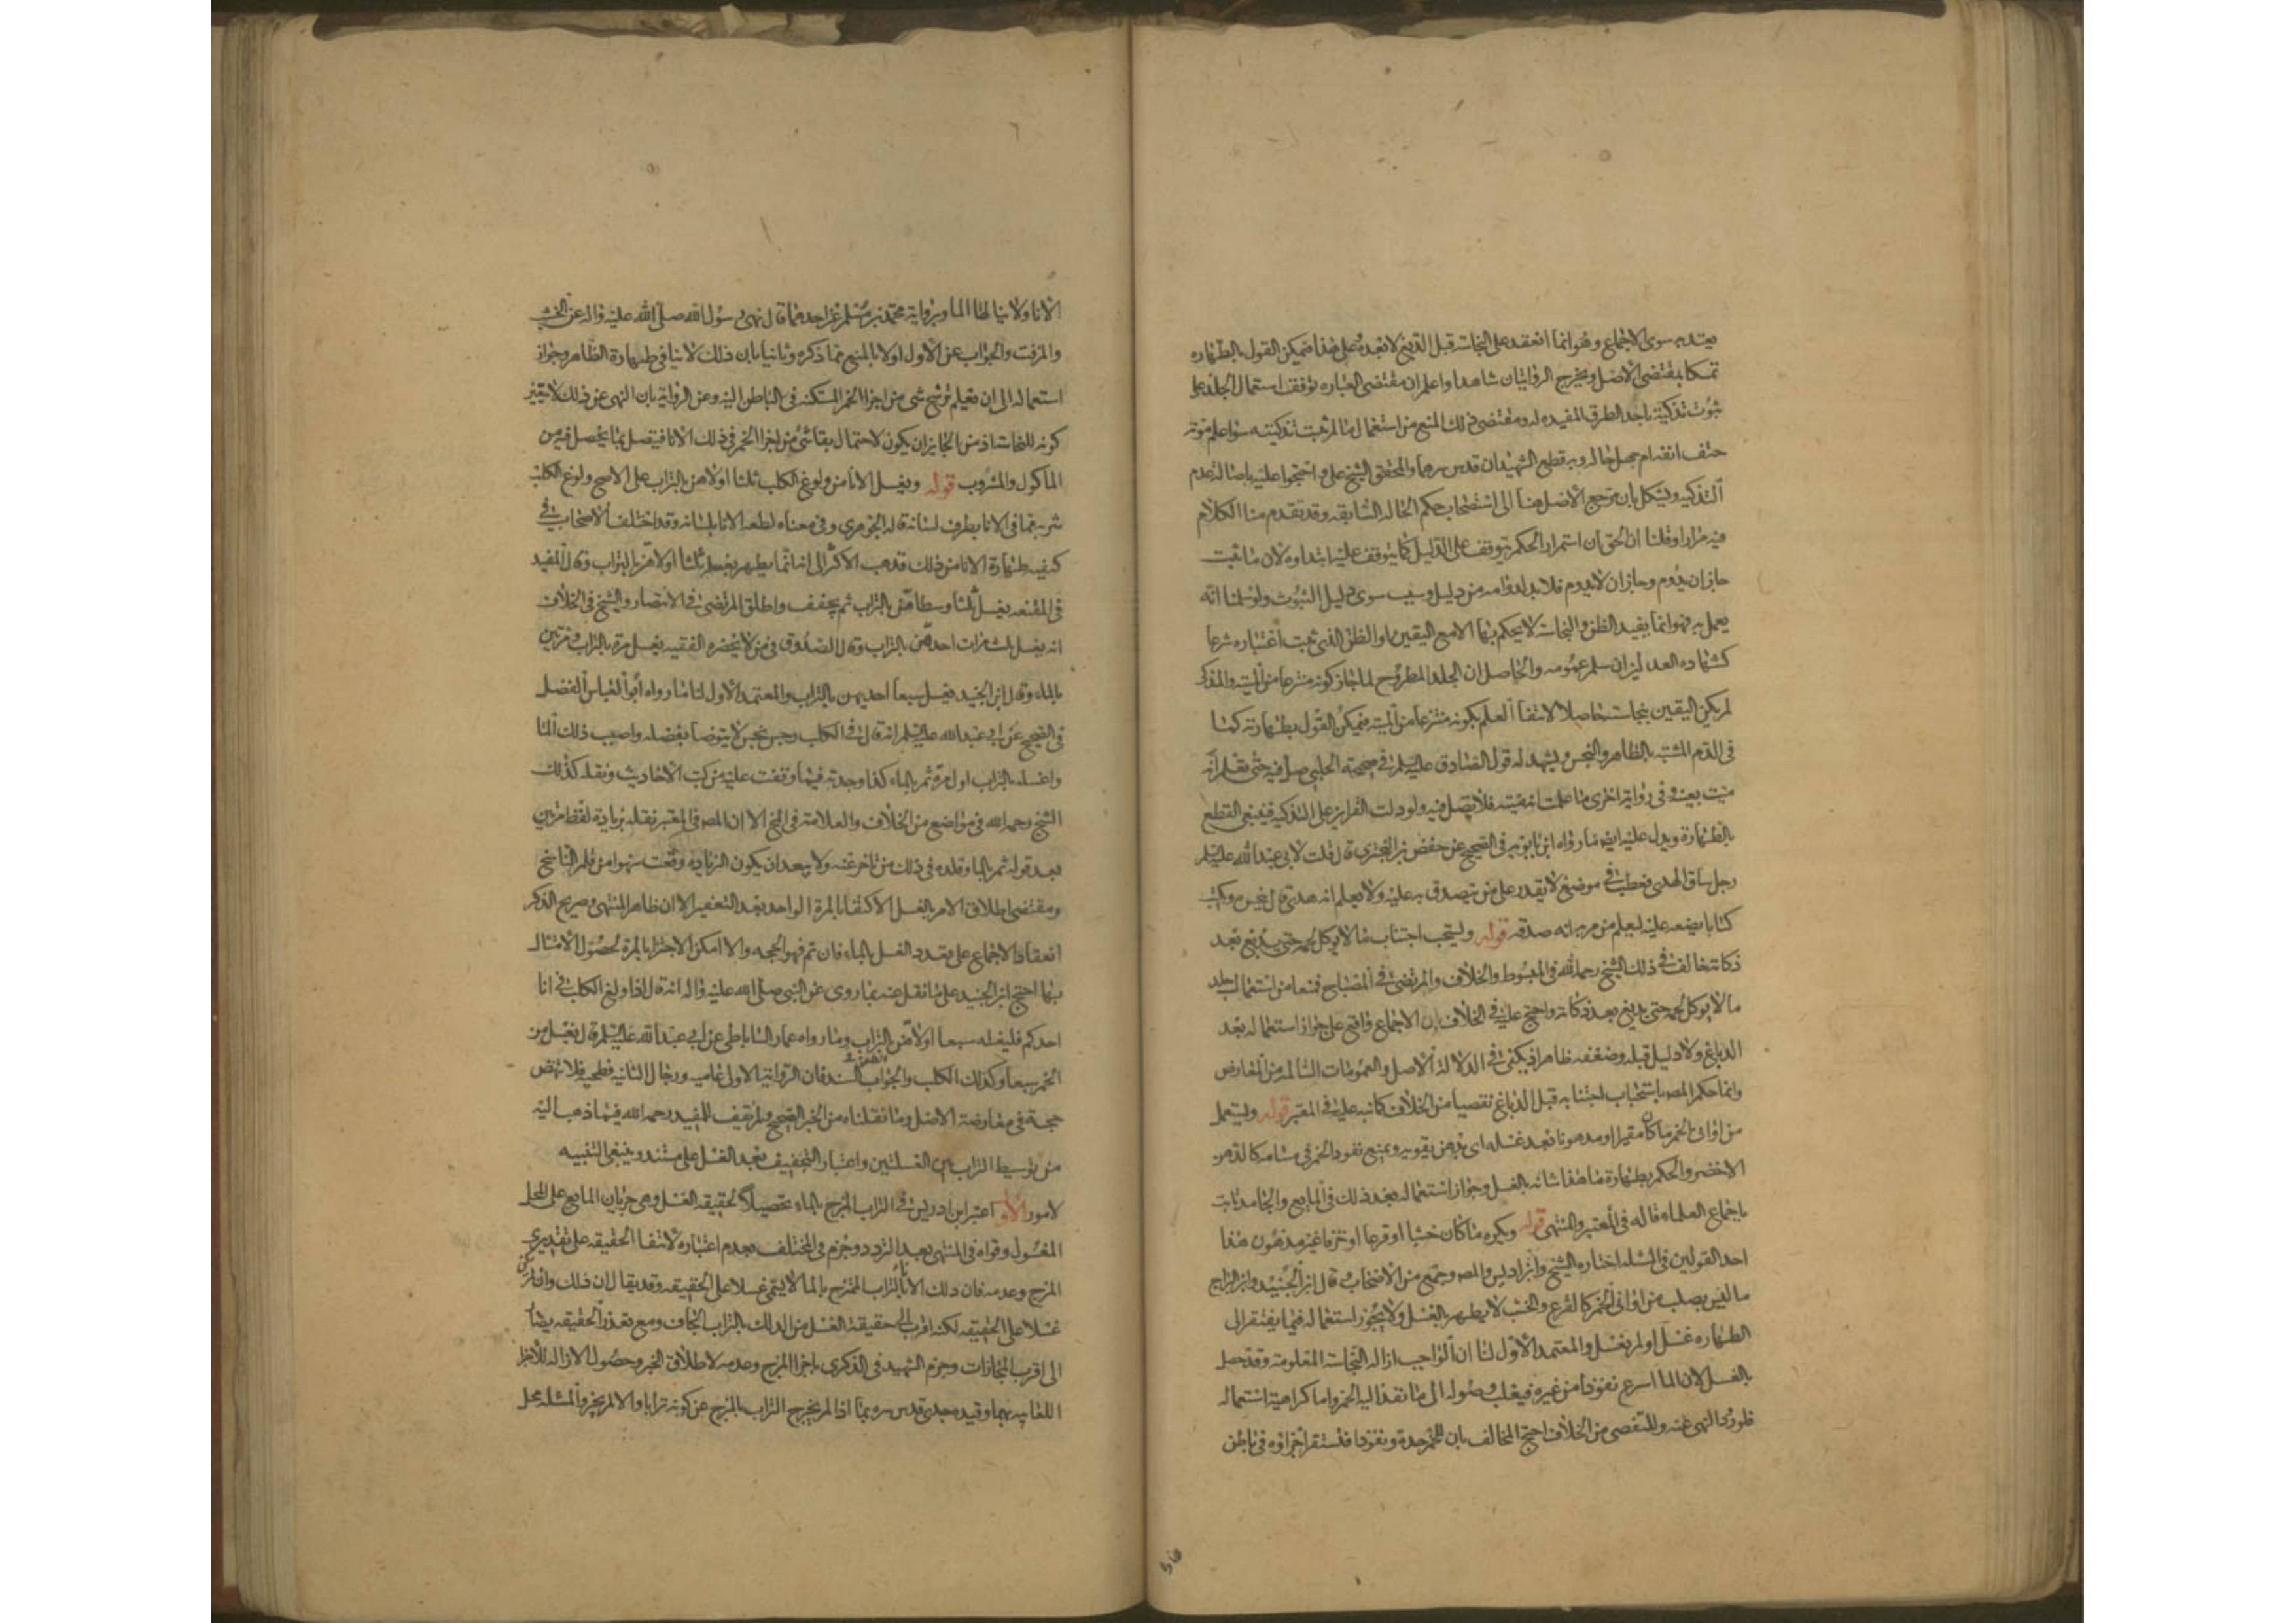 يعتد به سوى الاجماع وهو انما انعقد على النجاسة قبل الدبغ لا بعده وعلى هذا فيمكن القول بالطهارة
تمسكا بمقتضى الاصل ويخرج الروايتان شاهدا واعلم ان مقتضى العبارة توقف استعمال الجلد على
ثبوت تذكيته باحد الطرق المفيده له ومقتضى ذلك المنع من استعمال ما لم يثبت تذكيته سواء علم موته
حتف انفه ام جهل حاله وبه قطع الشهيدان قدس سرهما والمحقق الشيخ على واحتجوا عليه باصالة عدم
التذكيه ويشكل بان مرجع الاصل هنا الى استصحاب حكم الحالة السابقه وقد تقدم منا الكلام
فيه مرارا وقلنا ان الحق ان استمرار الحكم يتوقف على الدليل كما يتوقف عليه ابتداوه لان ما ثبت
جاز ان يدوم وجاز ان لا يدوم فلابد لدوامه من دليل وسبب سوى دليل الثبوت ولو سلمنا انه
يعمل به فهو انما يفيد الظن والنجاسة لا يحكم بها الا مع اليقين او الظن الذي ثبت اعتباره شرعا
كشهادة العدلين ان سلم عمومه والحاصل ان الجلد المطروح لما جاز كونه منتزعا من الميتة والمذكى
لم يكن اليقين بنجاسته حاصلا لانتفا العلم بكونه منتزعا من الميتة فيمكن القول بطهارته كما
في الدم المشتبه بالطاهر والنجس ويشهد له قول الصادق عليه السلم في صحيحة الحلبي صل فيه حتى تعلم انه
ميت بعينه وفي رواية اخرى ما علمت انه ميته فلا تصل فيه ولو دلت القراين على التذكيه فينبغي القطع
بالطهارة ويدل عليه ايضا ما رواه ابن بابويه في الصحيح عن حفص بن البختري قال قلت لابي عبد الله عليه السلم
رجل ساق الهدى فعطب في موضع لا يقدر على من يتصدق به عليه ولا يعلم انه هدى قال ينحره ويكتب
كتابا يضعه عليه ليعلم من مر به انه صدقه قوله ويستحب اجتناب ما لا يوكل لحمه حتى يدبغ بعد
ذكاته خالف في ذلك الشيخ رحمه الله في المبسوط والخلاف والمرتضى في المصباح فمنعا من استعمال جلد
ما لا يوكل لحمه حتى يدبغ بعد ذكاته واحتج عليه في الخلاف بان الاجماع واقع على جواز استعماله بعد
الدباغ ولا دليل قبله وضعفه ظاهر اذ يكفي في الدلالة الاصل والعمومات السالمة من المعارض
وانما حكم المصه باستحباب اجتنابه قبل الدباغ تفصيا من الخلاف كما نبه عليه في المعتبر قوله ويستعمل
من اواني الخمر ما كان مقيرا او مدهونا بعد غسله اي بدهن يقويه ويمنع نفود الخمر في مسامه كالدهن
الاخضر والحكم بطهارة ما هذا شانه بالغسل وجواز استعماله بعد ذلك في المايع والجامد ثابت
باجماع العلماء قاله في المعتبر والمنتهى قوله ويكره ما كان خشبا او قرعا او خزفا غير مدهون هذا
احد القولين في المسئلة اختاره الشيخ وابن ادريس والمصه وجمع من الاصحاب وقال ابن الجنيد وابن البراج
ما ليس بصلب من اواني الخمر كالقرع والخشب لا يطهر بالغسل ولا يجوز استعماله فيما يفتقر الى
الطهارة غسل او لم يغسل والمعتمد الاول لنا ان الواجب ازالة النجاسة المعلومة وقد حصل
بالغسل لان الما اسرع نفوذا من غيره فيغلب وصوله الى ما نفذ اليه الخمر واما كراهية استعماله
فلورود النهى عنه وللتفصى من الخلاف احتج المخالف بان للخمر حدة ونفوذا فتستقر اجزاؤه في باطن
الانا ولا ينالها الما وبرواية محمد بن مسلم عن احدهما قال نهى رسول الله صلى الله عليه واله عن الخشب
والمزفت والجواب عن الاول اولا بالمنع مما ذكره وثانيا بان ذلك لا ينافي طهارة الظاهر وجواز
استعماله الى ان يعلم ترشح شى من اجزا الخمر المستكنه في الباطن اليه وعن الرواية بان النهى عن ذلك لا يتعين
كونه للنجاسة اذ من الجايز ان يكون لاحتمال بقا شى من اجزا الخمر في ذلك الانا فيتصل بما يحصل فيه من
الماكول والمشروب قوله ويغسل الانا من ولوغ الكلب ثلثا اولاهن بالتراب على الاصح ولوغ الكلب
شربه مما في الانا بطرف لسانه قاله الجوهري وفي معناه لطعه الانا بلسانه وقد اختلف الاصحاب في
كيفيه طهارة الانا من ذلك فذهب الاكثر الى انه انما يطهر بغسله ثلثا اولاهن بالتراب وقال المفيد
في المقنعه يغسل ثلثا وسطاهن بالتراب ثم يجفف واطلق المرتضى في الانتصار والشيخ في الخلاف
انه يغسل ثلث مرات احدهن بالتراب وقال الصدوق في من لا يحضره الفقيه يغسل مرة بالتراب ومرتين
بالماء وقال ابن الجنيد يغسل سبعا احديهن بالتراب والمعتمد الاول لنا ما رواه ابو العباس الفضل
في الصحيح عن ابي عبد الله عليه السلم انه قال في الكلب رجس نجس لا يتوضا بفضله واصبب ذلك الما
واغسله بالتراب اول مرة ثم بالماء كذا وجدته فيما وقفت عليه من كتب الاحاديث ونقله كذلك
الشيخ رحمه الله في مواضع من الخلاف والعلامة في المنتهى الا ان المصه في المعتبر نقله بزيادة لفظ مرتين
بعد قوله ثم بالما وقلده في ذلك من تاخر عنه ولا يبعد ان يكون الزيادة وقعت سهوا من قلم الناسخ
ومقتضى اطلاق الامر بالغسل الاكتفا بالمرة الواحدة بعد التعفير الا ان ظاهر المنتهى وصريح الذكرى
انعقاد الاجماع على تعدد الغسل بالماء فان تم فهو الحجه والا امكن الاجتزا بالمرة لحصول الامتثال
بها احتج ابن الجنيد على ما نقل عنه بما روى عن النبى صلى الله عليه واله انه قال اذا ولغ الكلب في انا
احدكم فليغسله سبعا اولاهن بالتراب وما رواه عمار الساباطى عن ابي عبد الله عليه السلم قال يغسل من
الخمر سبعا وكذلك الكلب والجواب السند فان الرواية الاولى عاميه ورجال الثانيه فطحيه فلا تنهض
حجة في معارضة الاصل وما نقلناه من الخبر الصحيح ولم نقف للمفيد رحمه الله فيما ذهب اليه
من توسيط التراب بين الغسلتين واعتبار التجفيف بعد الغسل على مستند وينبغى التنبيه
لامور الاول اعتبر ابن ادريس في التراب المزج بالماء تحصيلا لحقيقه الغسل وهى جريان المايع على المحل
المغسول وقواه في المنتهى بعد التردد وجزم في المختلف بعدم اعتباره لانتفا الحقيقه على تقديرى
المزج وعدمه فان دلك الانا بالتراب الممتزج بالما لا يسمى غسلا على الحقيقه وقد يقال ان ذلك وان لم يكن
غسلا على الحقيقه لكنه اقرب الى حقيقة الغسل من الدلك بالتراب الجاف ومع تعذر الحقيقه يصار
الى اقرب المجازات وجزم الشهيد في الذكرى باجزا المزج وعدمه لاطلاق الخبر وحصول الازالة للاجزا
اللعابيه بهما وقيده جدى قدس سره بما اذا لم يخرج التراب بالمزج عن كونه ترابا والا لم يجز والمسئلة محل